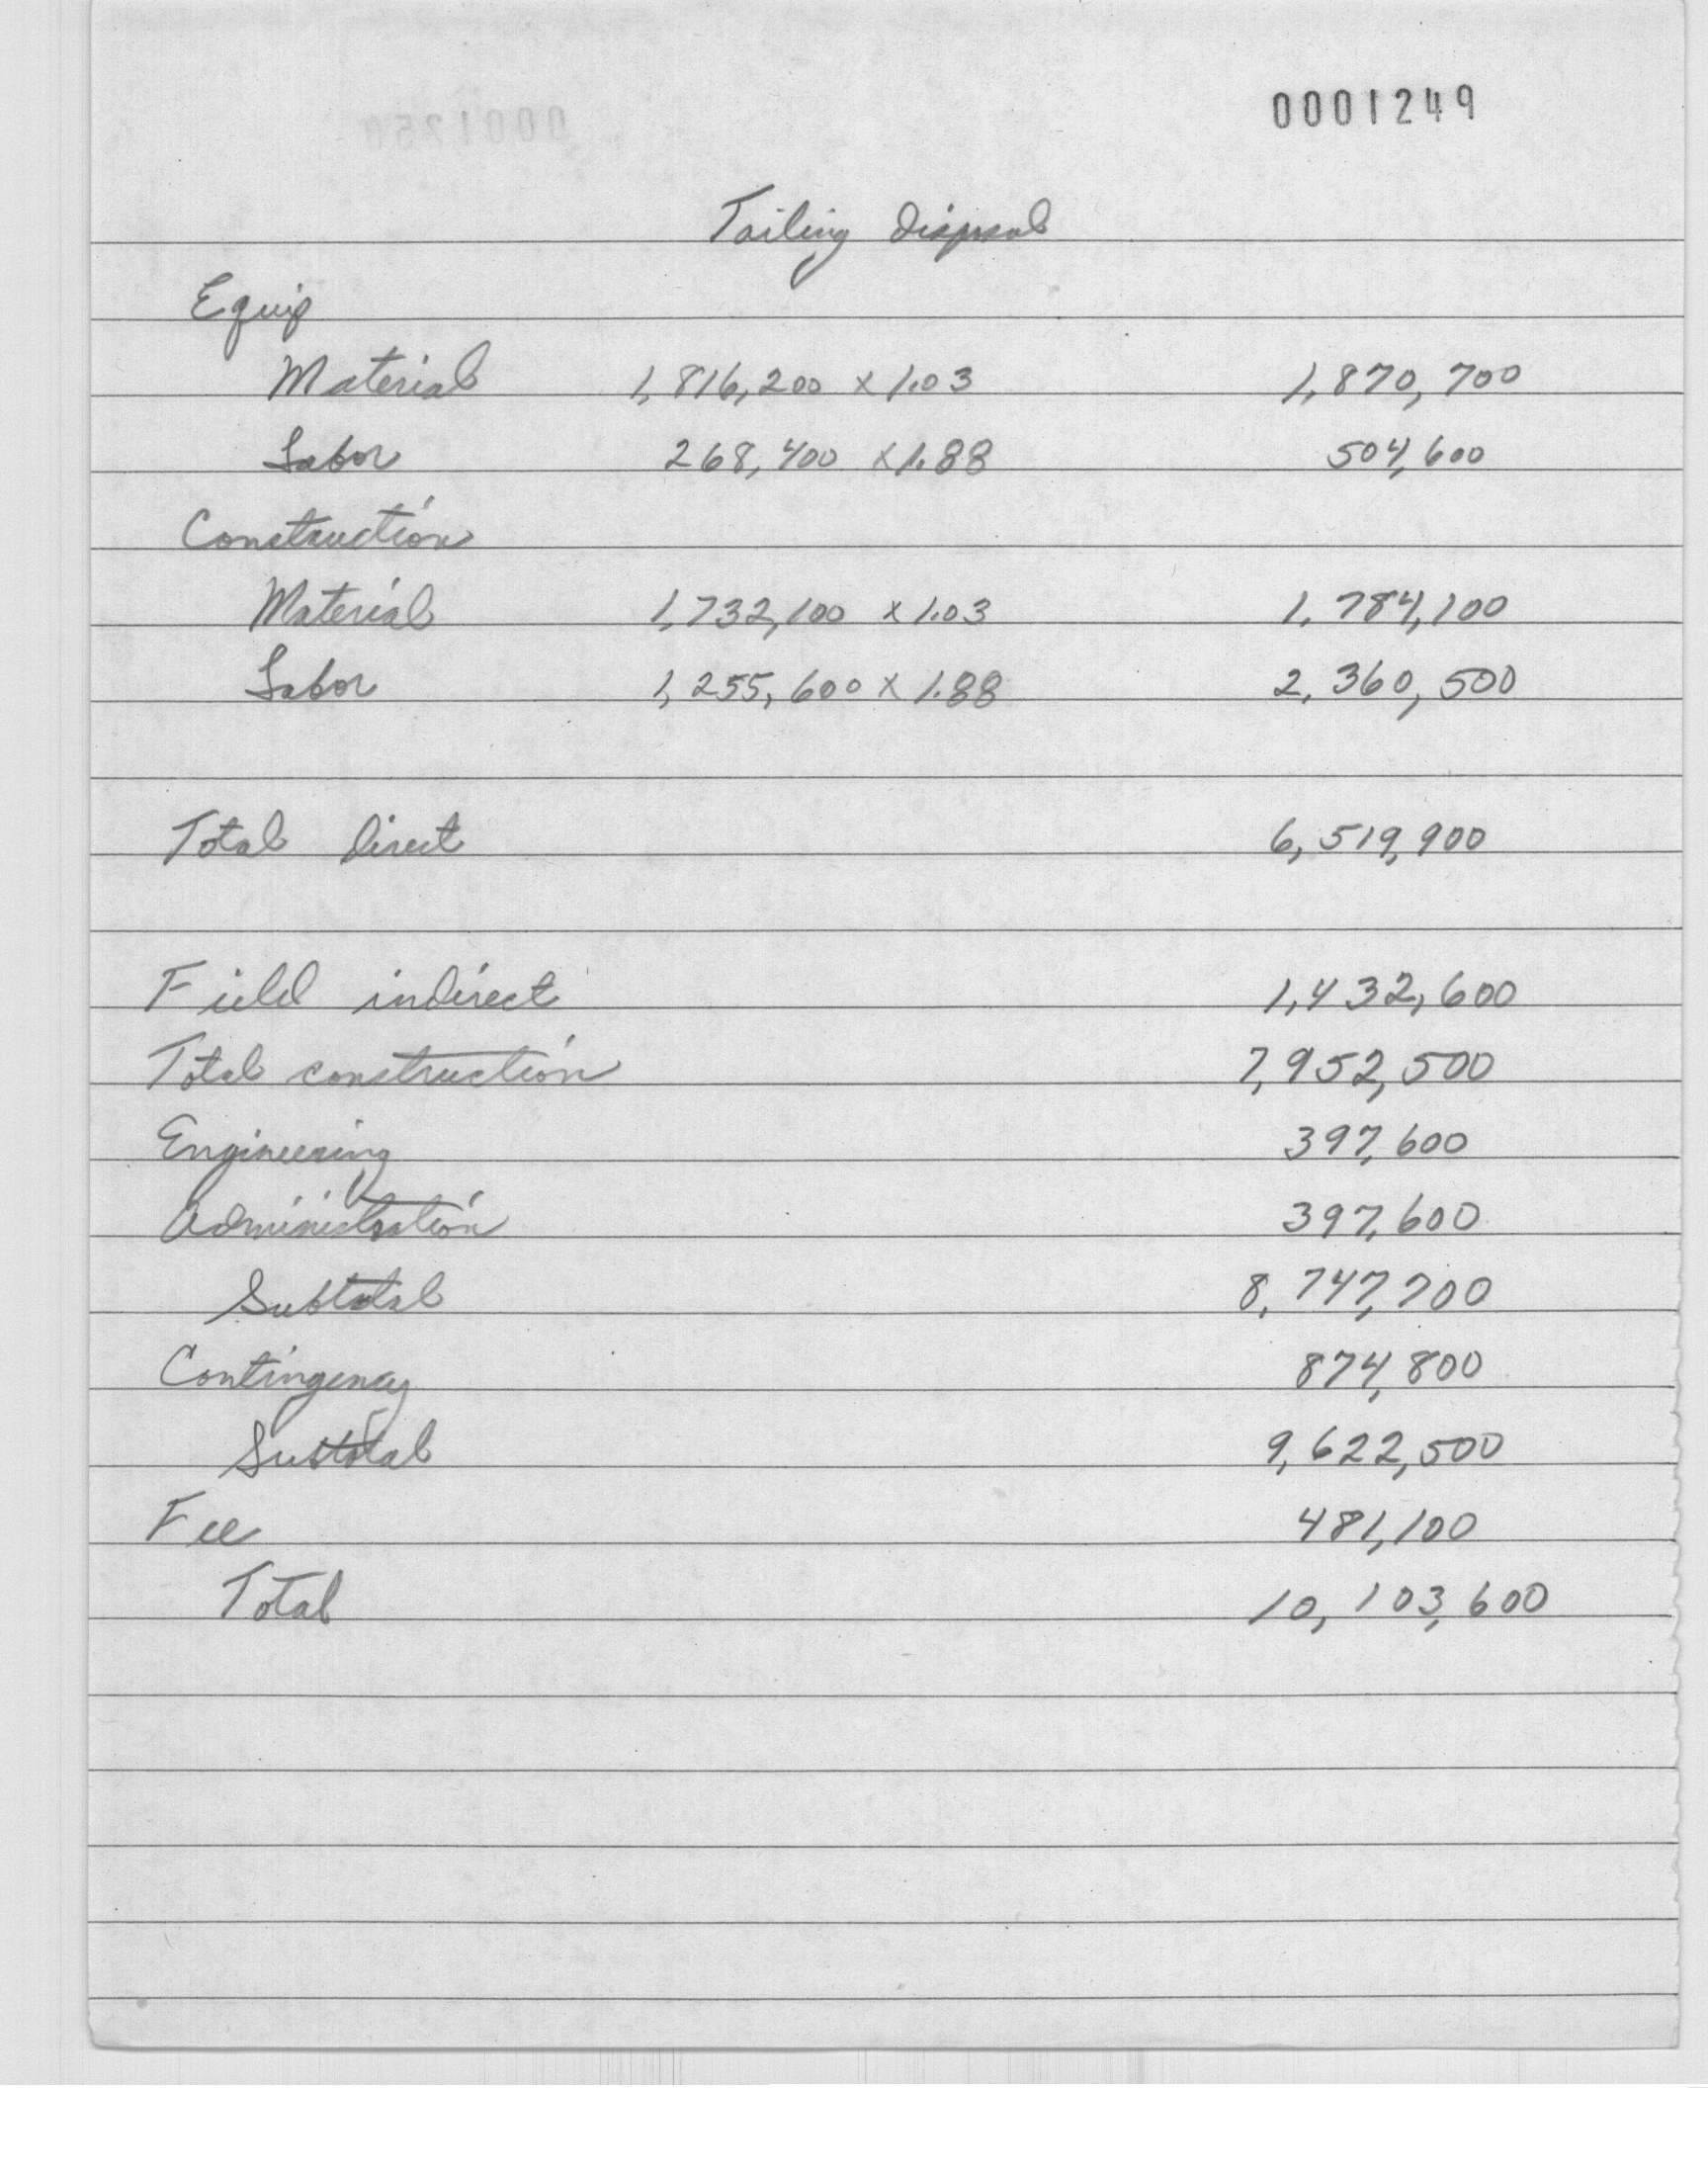 0001249
Tailing disposal
Equip
Material 1,816,200 x 1.03 1,870,700
Labor 268,400 x 1.88 504,600
Construction
Material 1,732,100 x 1.03 1,784,100
Labor 1,255,600 x 1.88 2,360,500
Total direct 6,519,900
Field indirect 1,432,600
Total construction 7,952,500
Engineering 397,600
Administration 397,600
Subtotal 8,747,700
Contingency 874,800
Subtotal 9,622,500
Fee 481,100
Total 10,103,600